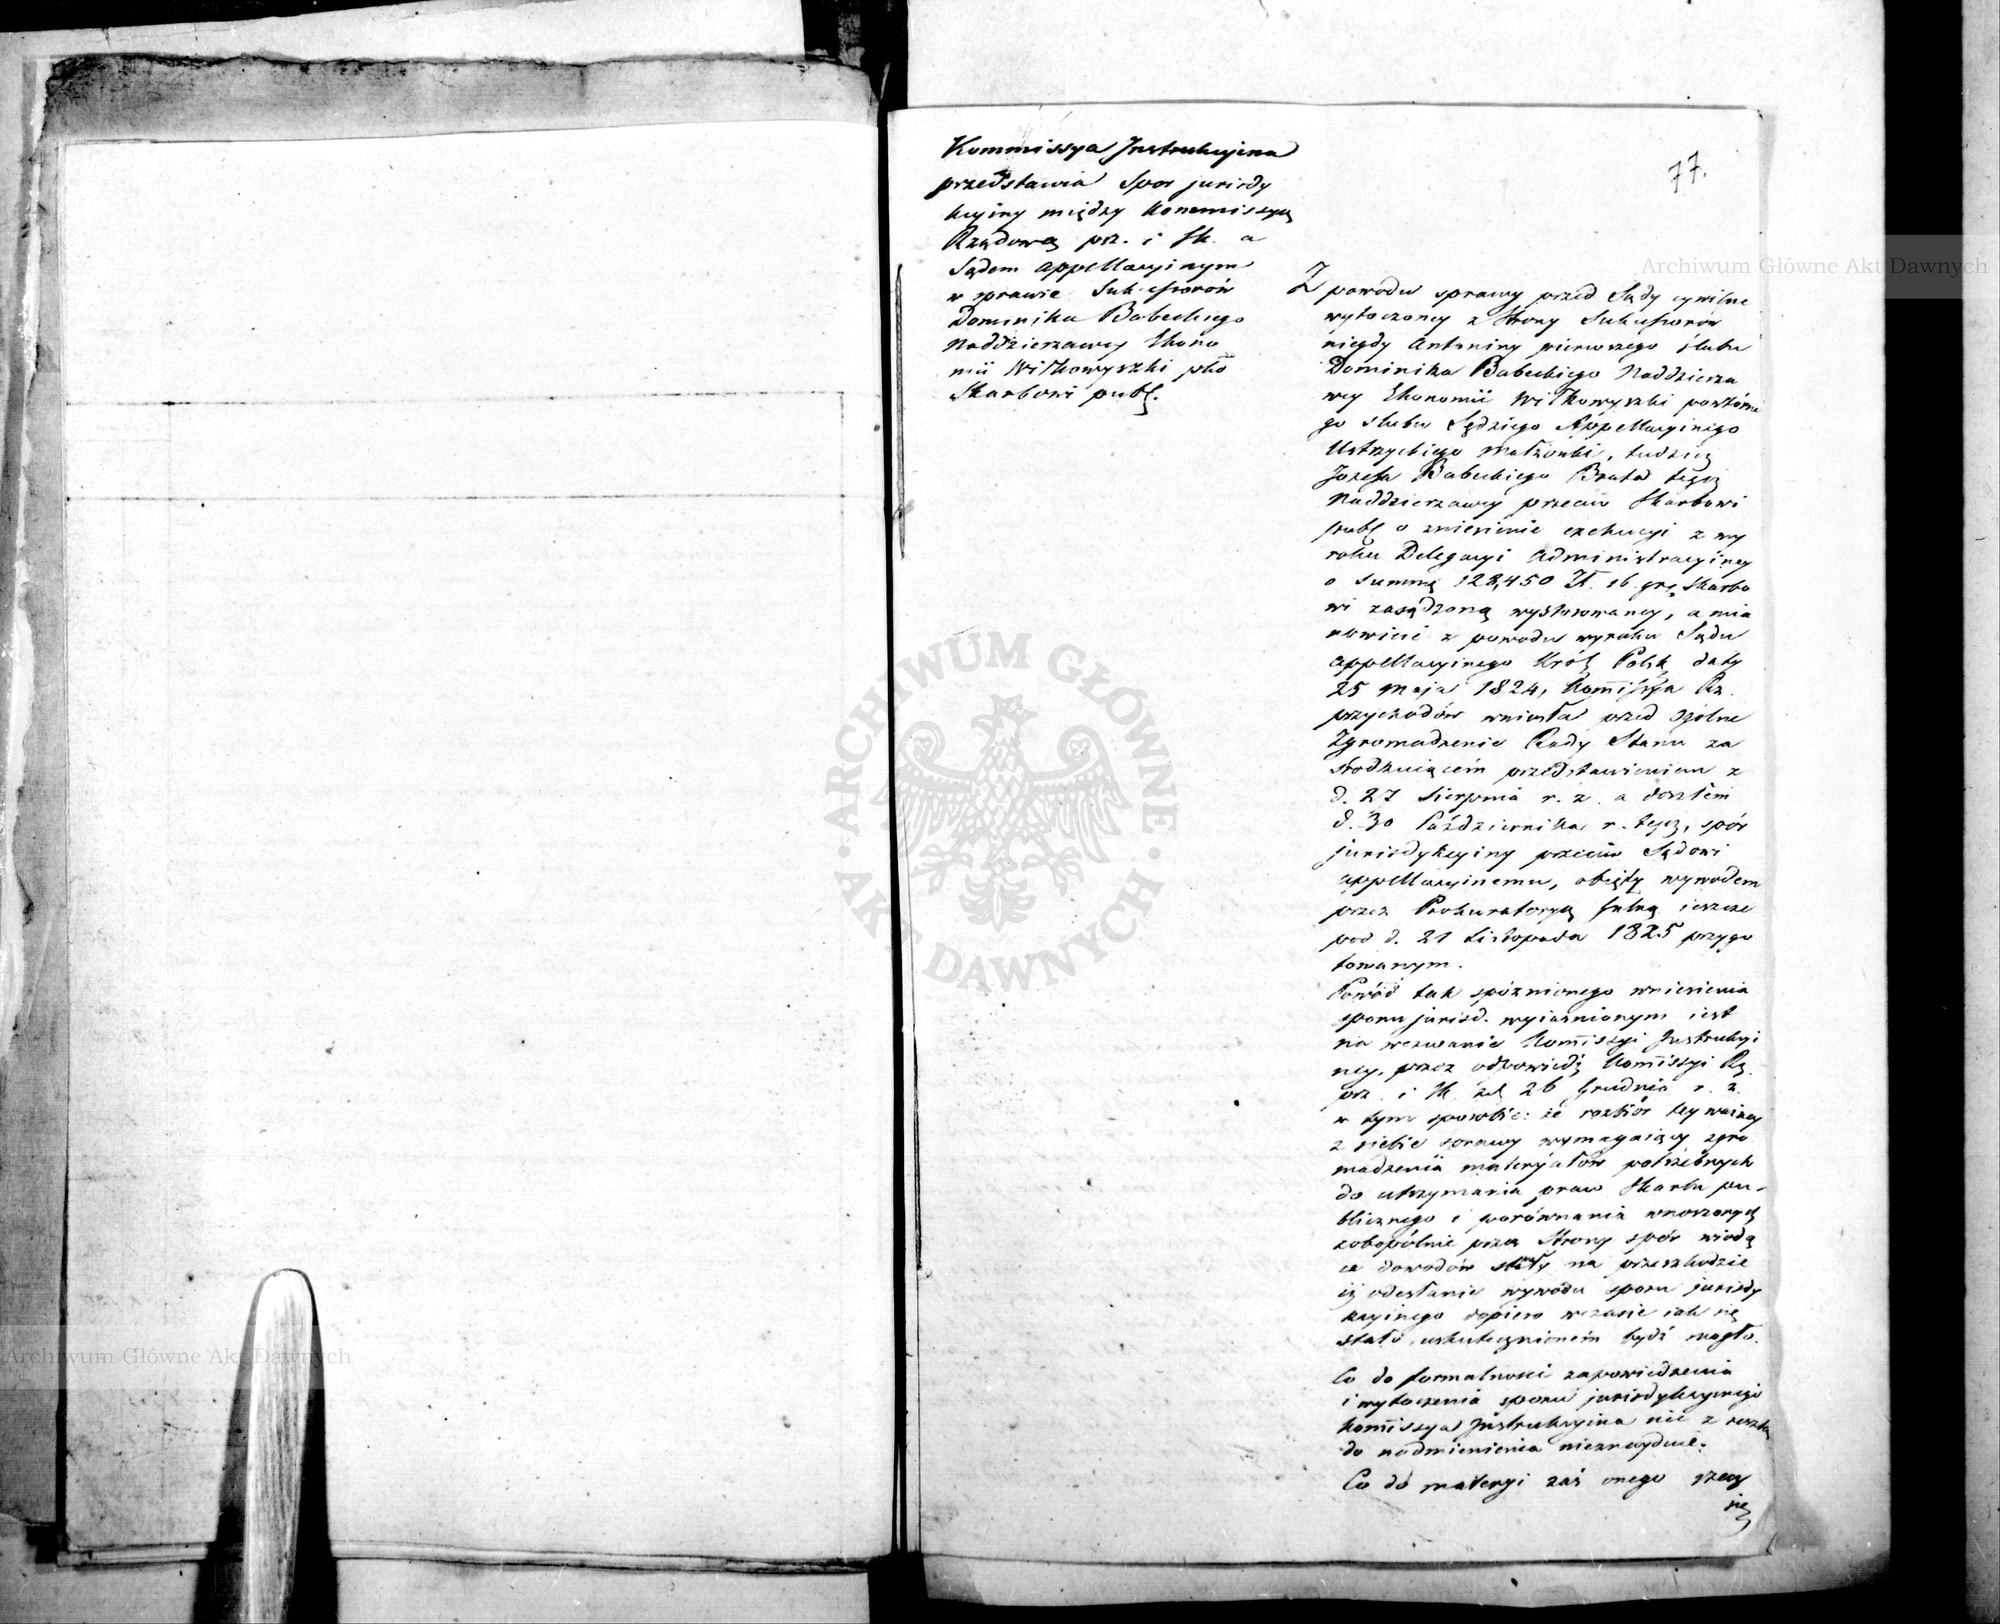 77.
Kommissya Instrukcyina
przedstawia Spor jurisdy
kcyiny między Kommissyą
Rządową prz. i Sk. a
Sądem Appellacyinym
w sprawie Sukcessorów
Dominika Babeckiego
Naddzierzawcy Ekono
mii Wiłkowyszki pko
Skarbowi publ.
Z powodu sprawy przed Sądy cywilne
wytoczoney z Strony Sukcessorów
niegdy Antoniny pierwszego ślubu
Dominika Babeckiego Naddzierza
wcy Ekonomii Wiłkowyszki powtórne
go ślubu Sędziego Appellacyinego
Ustrzyckiego małżonki, tudzież
Jozefa Babeckiego Brata tegoż
Naddzierzawcy przeciw Skarbowi
publ o zniesienie exekucyi z wy
roku Delegacyi Administracyiney
o summę 128,450 Zł. 16 gr. Skarbo
wi zasądzoną wystosowaney, a mia
nowicie z powodu wyroku Sądu
Appellacyinego Król Polsk daty
25 Maja 1824, Kommissya Rz.
przychodów wniosła przed Ogólne
Zgromadzenie Rady Stanu za
środkuiącém przedstawieniem z
d. 27 Sierpnia r. z. a doszłém
d. 30 Października r. tegoż, spór
jurisdykcyiny przeciw Sądowi
appellacyinemu, obięty wywodem
przez Prokuratoryą Jnlną ieszcze
pod d. 21 Listopada 1825 przygo
towanym.
Powód tak spóznionego wniesienia
sporu jurisd. wyiaśnionym iest
na wezwanie Kommissyi Instrukcyi
ney, przez odpowiedź Kommissyi Rz.
prz. i Sk. zd 26 Grudnia r. z.
w tym sposobie: że rozbiór tey ważney
z siebie sprawy wymagaiący zgro
madzenia materyałów potrzebnych
do utrzymania praw Skarbu pu-
blicznego i porównania wnoszonych
zobopólnie przez Strony spór wiodą
ce dowodów stały na przeszkodzie
iż odesłanie wywodu sporu jurisdy
kcyinego dopiero wczasie iak się
stało, uskutecznioném bydź mogło.
Co do formalności zapowiedzenia
i wytoczenia sporu jurisdykcyinego
Kommissya Instrukcyina nic z reszty
do nadmienienia nieznayduie.
Co do materyi zaś onego rzeczy
się
Archiwum Główne Akt Dawnych
Archiwum Główne Akt Dawnych
ARCHIWUM GŁÓWNE AKT DAWNYCH